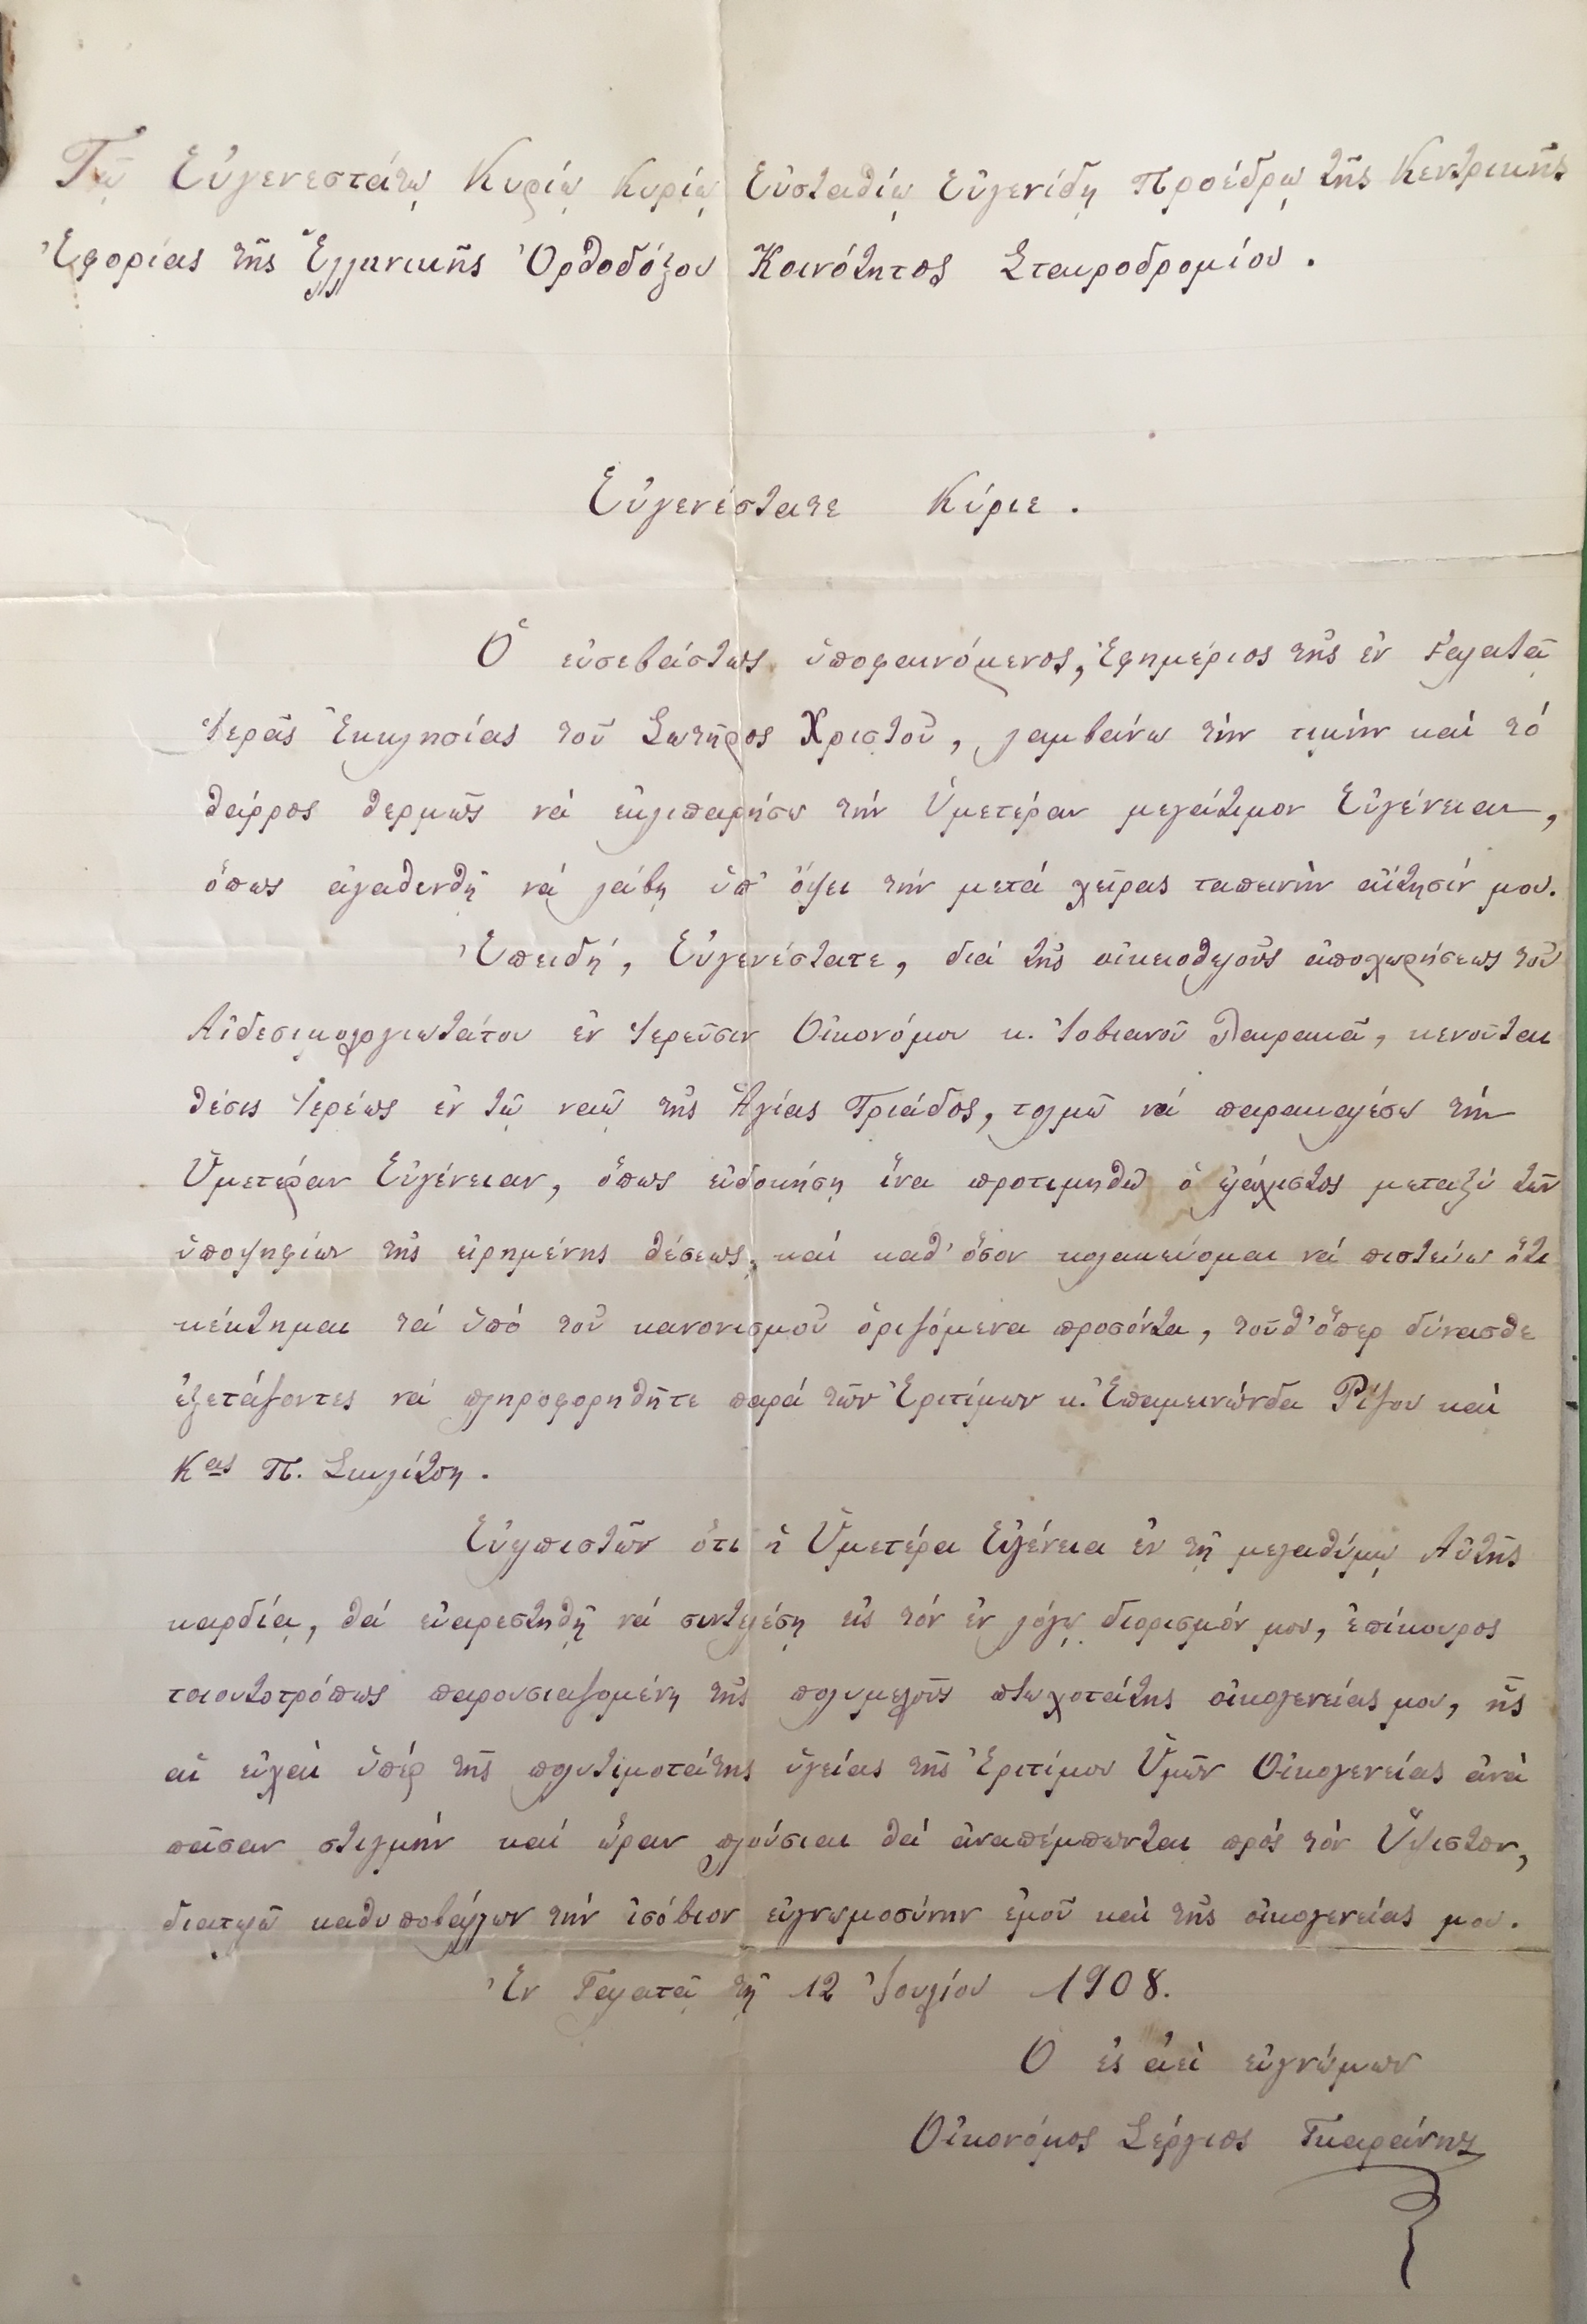 Τῷ Εὐγενεστάτῳ Κυρίῳ Κυρίῳ Εὐσταθίῳ Εὐγενίδῃ Προέδρῳ τῆς Κεντρικῆς
Ἐφορίας τῆς Ἑλληνικῆς Ὀρθοδόξου Κοινότητος Σταυροδρομίου.
Εὐγενέστατε Κύριε.
Ὁ εὐσεβάστως ὑποφαινόμενος, Ἐφημέριος τῆς ἐν Γαλατᾷ
Ἱερᾶς Ἐκκλησίας τοῦ Σωτῆρος Χριστοῦ, λαμβάνω τήν τιμήν καί τό
θάρρος θερμῶς νά ἐκλιπαρήσω τήν Ὑμετέραν μεγάτιμον Εὐγένειαν,
ὅπως ἀγαθυνθῇ νά λάβῃ ὑπ' ὄψει τήν μετά χεῖρας ταπεινὴν αἴτησίν μου.
Ἐπειδή, Εὐγενέστατε, διά τῆς οἰκειοθελοῦς ἀποχωρήσεως τοῦ
Αἰδεσιμολογιωτάτου ἐν Ἱερεῦσιν Οἰκονόμου κ. Ἰοβιανοῦ κενοῦται
θέσις Ἱερέως ἐν τῷ ναῷ τῆς Ἁγίας Τριάδος, τολμῶ νά παρακαλέσω τήν
Ὑμετέραν Εὐγένειαν, ὅπως εὐδοκήσῃ ἵνα προτιμηθῶ ὁ ἐλάχιστος μεταξύ τῶν
ὑποψηφίων τῆς εἰρημένης θέσεως, καί καθ' ὅσον κολακεύομαι νά πιστεύω ὅτι
κέκτημαι τά ὑπό τοῦ κανονισμοῦ ὁριζόμενα προσόντα, τοῦθ' ὅπερ δύνασθε
ἐξετάζοντες νά πληροφορηθῆτε παρά τῶν Ἐριτίμων κ. Ἐπαμεινώνδα Ρίζου καί
Κας Π. Σκυλίτση.
Εὐελπιστῶν ὅτι ἡ Ὑμετέρα Εὐγένεια ἐν τῇ μεγαθύμῳ Αὐτῆς
καρδίᾳ, θά εὐαρεστηθῇ νά συντελέσῃ εἰς τόν ἐν λόγῳ διορισμόν μου, ἐπίκουρος
τοιουτοτρόπως παρουσιαζομένη τῆς πολυμελοῦς πτωχοτάτης οἰκογενείας μου, ἧς
αἱ εὐχαί ὑπέρ τῆς πολυτιμοτάτης ὑγείας τῆς Ἐριτίμου Ὑμῶν Οἰκογενείας ἀνά
πᾶσαν στιγμήν καί ὥραν πλούσιαι θά ἀναπέμπωνται πρός τόν Ὕψιστον,
διατελῶ καθυποβάλλων τήν ἰσόβιον εὐγνωμοσύνην ἐμοῦ καί τῆς οἰκογενείας μου.
Ἐν Γαλατᾷ τῇ 12 Ἰουλίου 1908.
Ὁ ἐς ἀεί εὐγνώμων
Οἰκονόμος Σέργιος Γκαράνης